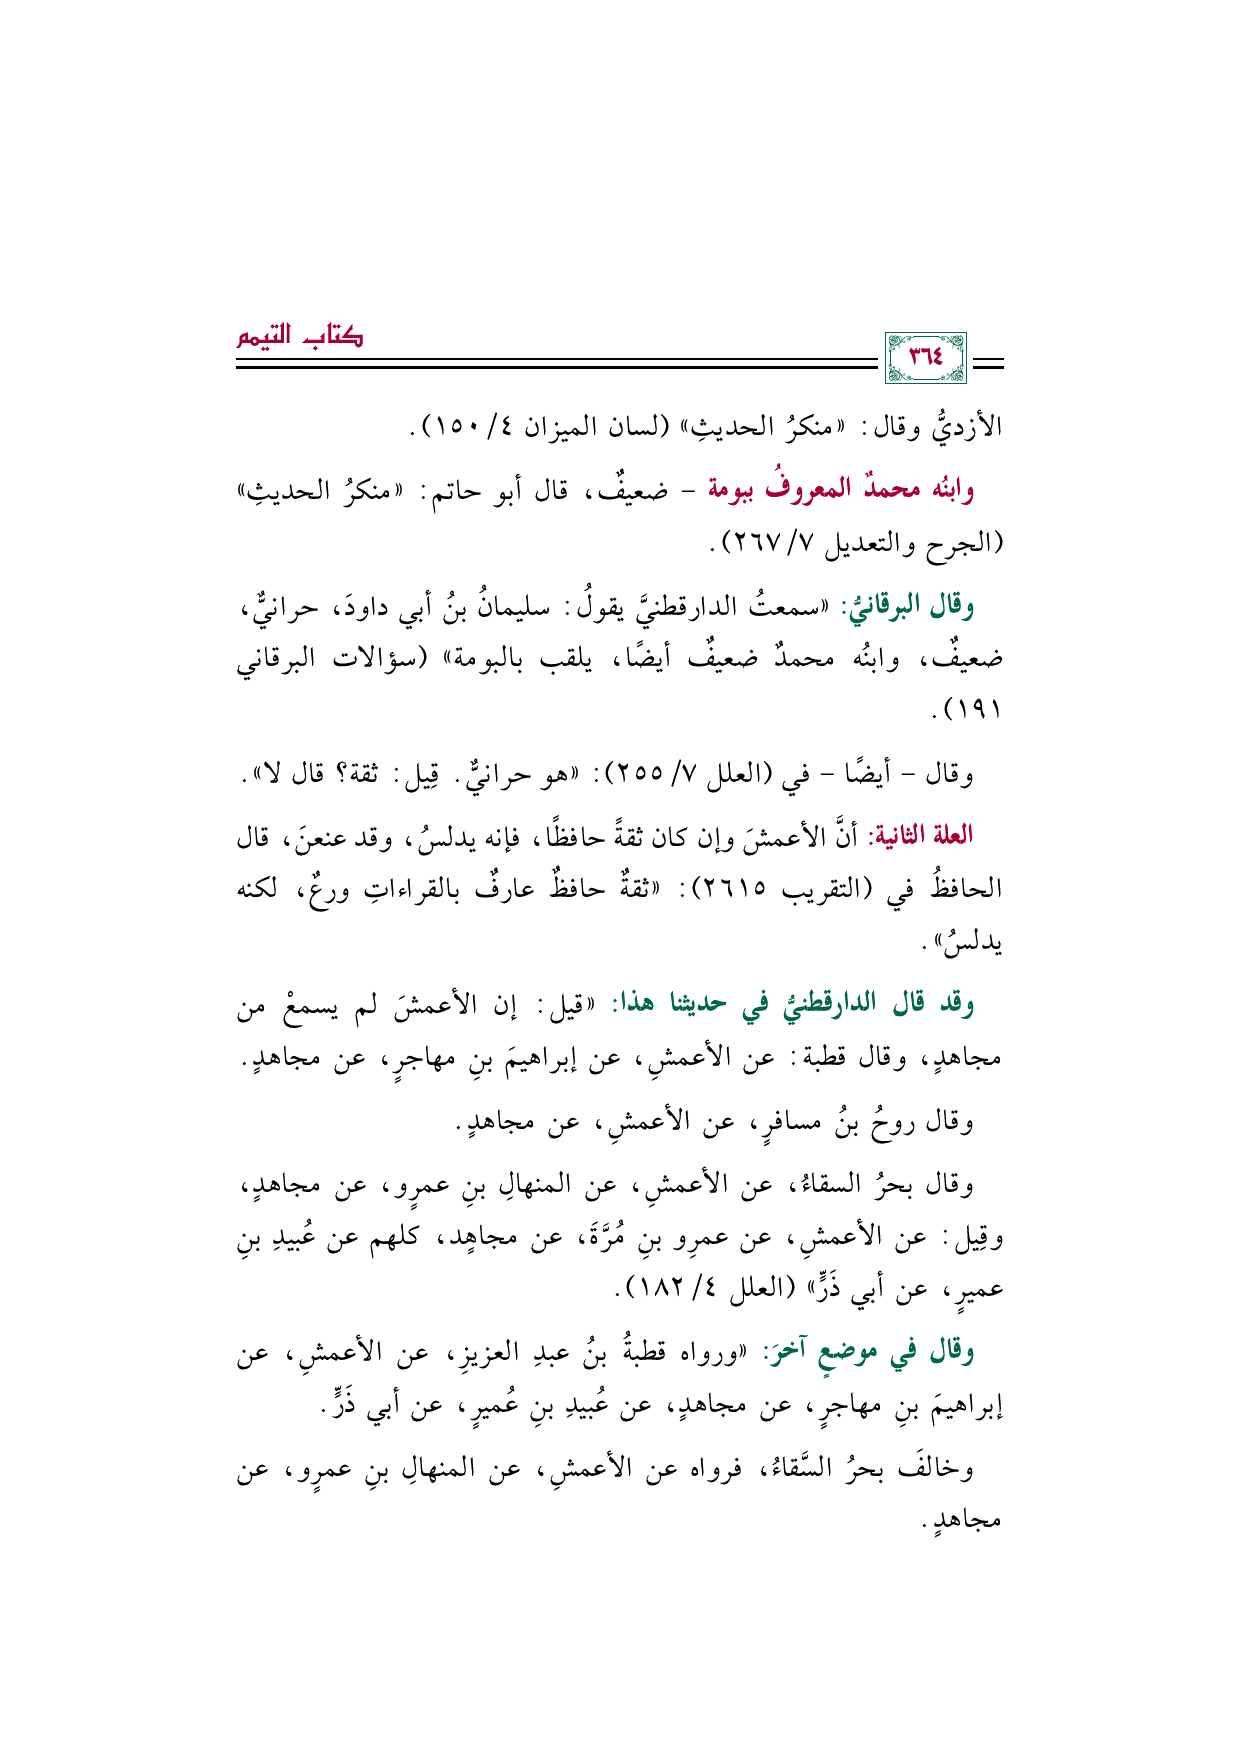 كتاب التيمم
٣٦٤
الأزديُّ وقال: «منكرُ الحديثِ» (لسان الميزان ٤/ ١٥٠).
وابنُه محمدٌ المعروفُ ببومة – ضعيفٌ، قال أبو حاتم: «منكرُ الحديثِ»
(الجرح والتعديل ٧/ ٢٦٧).
وقال البرقانيُّ: «سمعتُ الدارقطنيَّ يقولُ: سليمانُ بنُ أبي داودَ، حرانيٌّ،
ضعيفٌ، وابنُه محمدٌ ضعيفٌ أيضًا، يلقب بالبومة» (سؤالات البرقاني
١٩١).
وقال – أيضًا – في (العلل ٧/ ٢٥٥): «هو حرانيٌّ. قِيل: ثقة؟ قال لا».
العلة الثانية: أنَّ الأعمشَ وإن كان ثقةً حافظًا، فإنه يدلسُ، وقد عنعنَ، قال
الحافظُ في (التقريب ٢٦١٥): «ثقةٌ حافظٌ عارفٌ بالقراءاتِ ورعٌ، لكنه
يدلسُ».
وقد قال الدارقطنيُّ في حديثنا هذا: «قيل: إن الأعمشَ لم يسمعْ من
مجاهدٍ، وقال قطبة: عن الأعمشِ، عن إبراهيمَ بنِ مهاجرٍ، عن مجاهدٍ.
وقال روحُ بنُ مسافرٍ، عن الأعمشِ، عن مجاهدٍ.
وقال بحرُ السقاءُ، عن الأعمشِ، عن المنهالِ بنِ عمرٍو، عن مجاهدٍ،
وقِيل: عن الأعمشِ، عن عمرِو بنِ مُرَّةَ، عن مجاهٍد، كلهم عن عُبيدِ بنِ
عميرٍ، عن أبي ذَرٍّ» (العلل ٤/ ١٨٢).
وقال في موضعٍ آخرَ: «ورواه قطبةُ بنُ عبدِ العزيزِ، عن الأعمشِ، عن
إبراهيمَ بنِ مهاجرٍ، عن مجاهدٍ، عن عُبيدِ بنِ عُميرٍ، عن أبي ذَرٍّ.
وخالفَ بحرُ السَّقاءُ، فرواه عن الأعمشِ، عن المنهالِ بنِ عمرٍو، عن
مجاهدٍ.